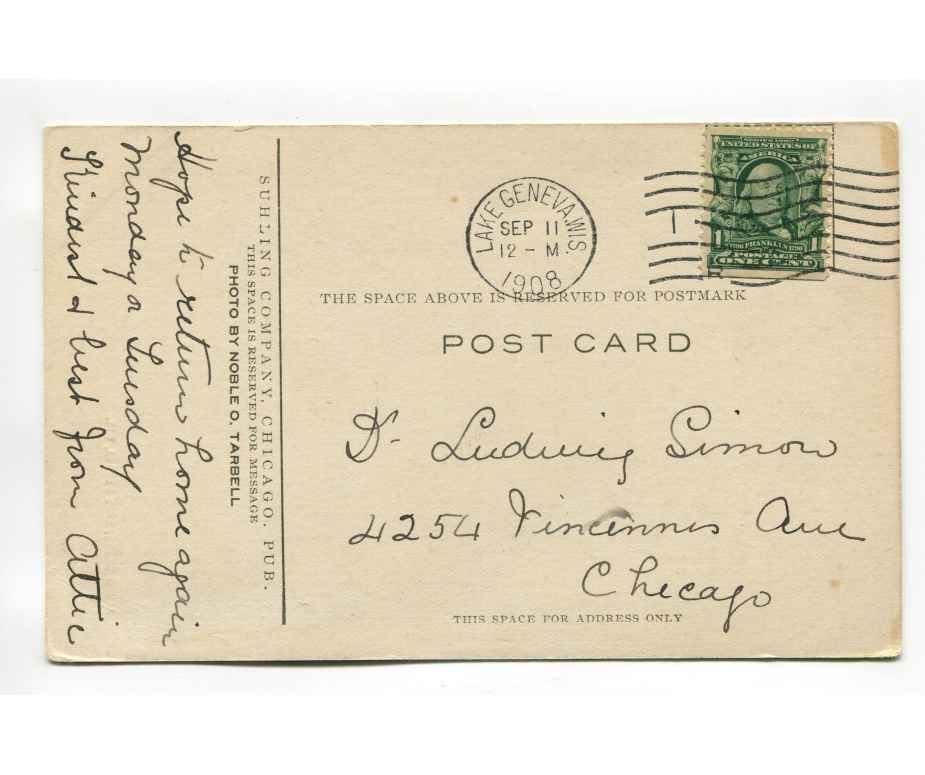 Hope to return home again
Monday or Tuesday
Kindest & best from Attie
SUHLING COMPANY, CHICAGO, PUB.
THIS SPACE IS RESERVED FOR MESSAGE
PHOTO BY NOBLE O. TARBELL
LAKE GENEVA, WIS.
SEP 11
12 - M.
1908
1
UNITED STATES OF
AMERICA
FRANKLIN
1 1
POSTAGE
ONE CENT
THE SPACE ABOVE IS RESERVED FOR POSTMARK
POST CARD
Dr. Ludwig Simon
4254 Vincennes Ave
Chicago
THIS SPACE FOR ADDRESS ONLY